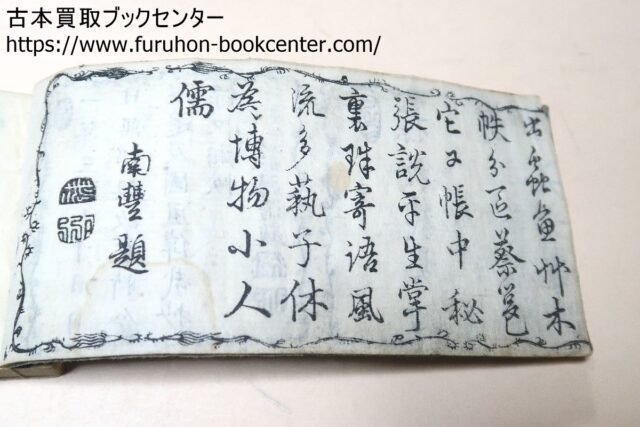 古本買取ブックセンター
https://www.furuhon-bookcenter.com/
蟲魚艸木
帙分蔡邕
帳中秘
張說平生掌
裏珠寄語風
流多藝子休
為博物小人
儒
南豐題